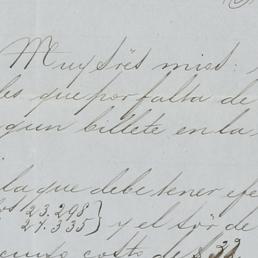 Muy Sres mios:
les que por falta de
gun billete en la
la que debe tener efe
los 23.298
27.335 } y el sor de
costs de